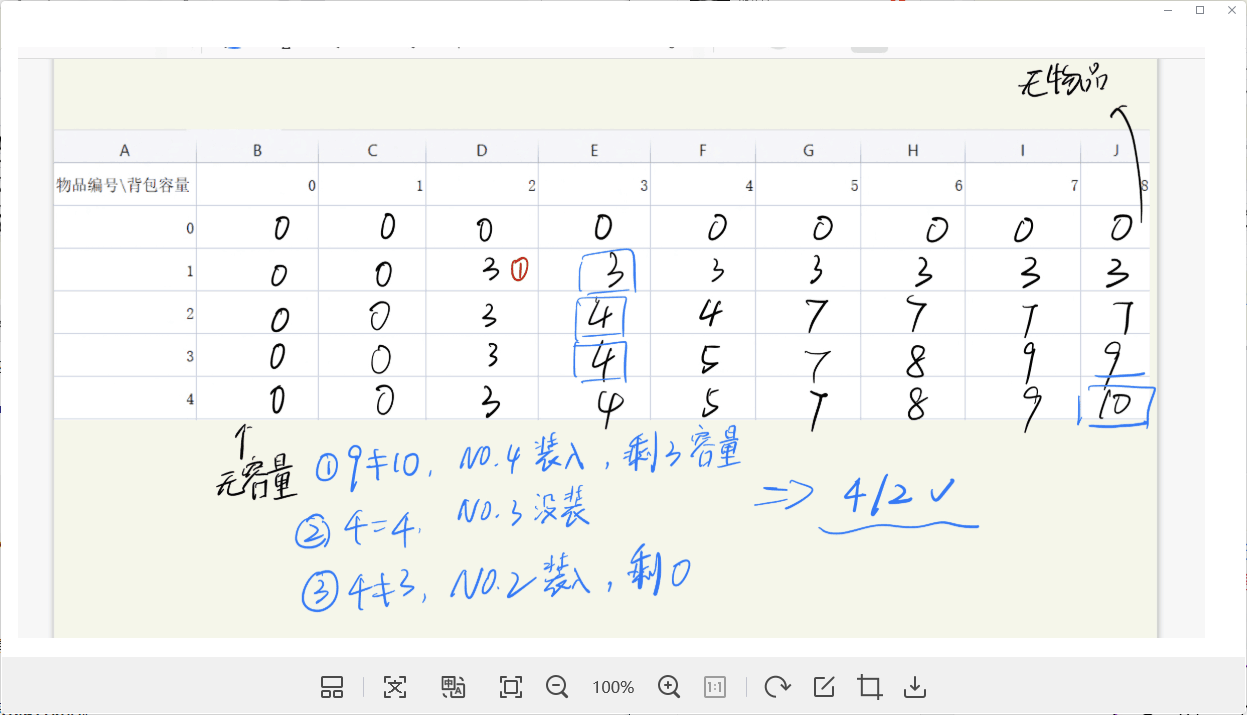 无物品
A B C D E F G H I J
物品编号\背包容量 0 1 2 3 4 5 6 7 8
0 0 0 0 0 0 0 0 0 0
1 0 0 3 ① 3 3 3 3 3 3
2 0 0 3 4 4 7 7 7 7
3 0 0 3 4 5 7 8 9 9
4 0 0 3 4 5 7 8 9 10
↑
无容量
① 9≠10, NO.4 装入, 剩3容量
② 4=4, NO.3 没装
③ 4≠3, NO.2 装入, 剩0
=> 4/2 ✓
100%
1:1